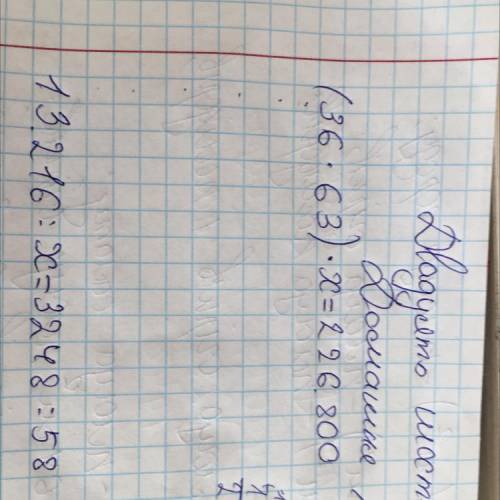 Двадцять шост
Домашнє
(36 · 63) · x = 226 800
13 216 : x = 3248 : 58